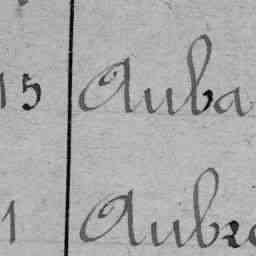 15 Auba
1 Aub